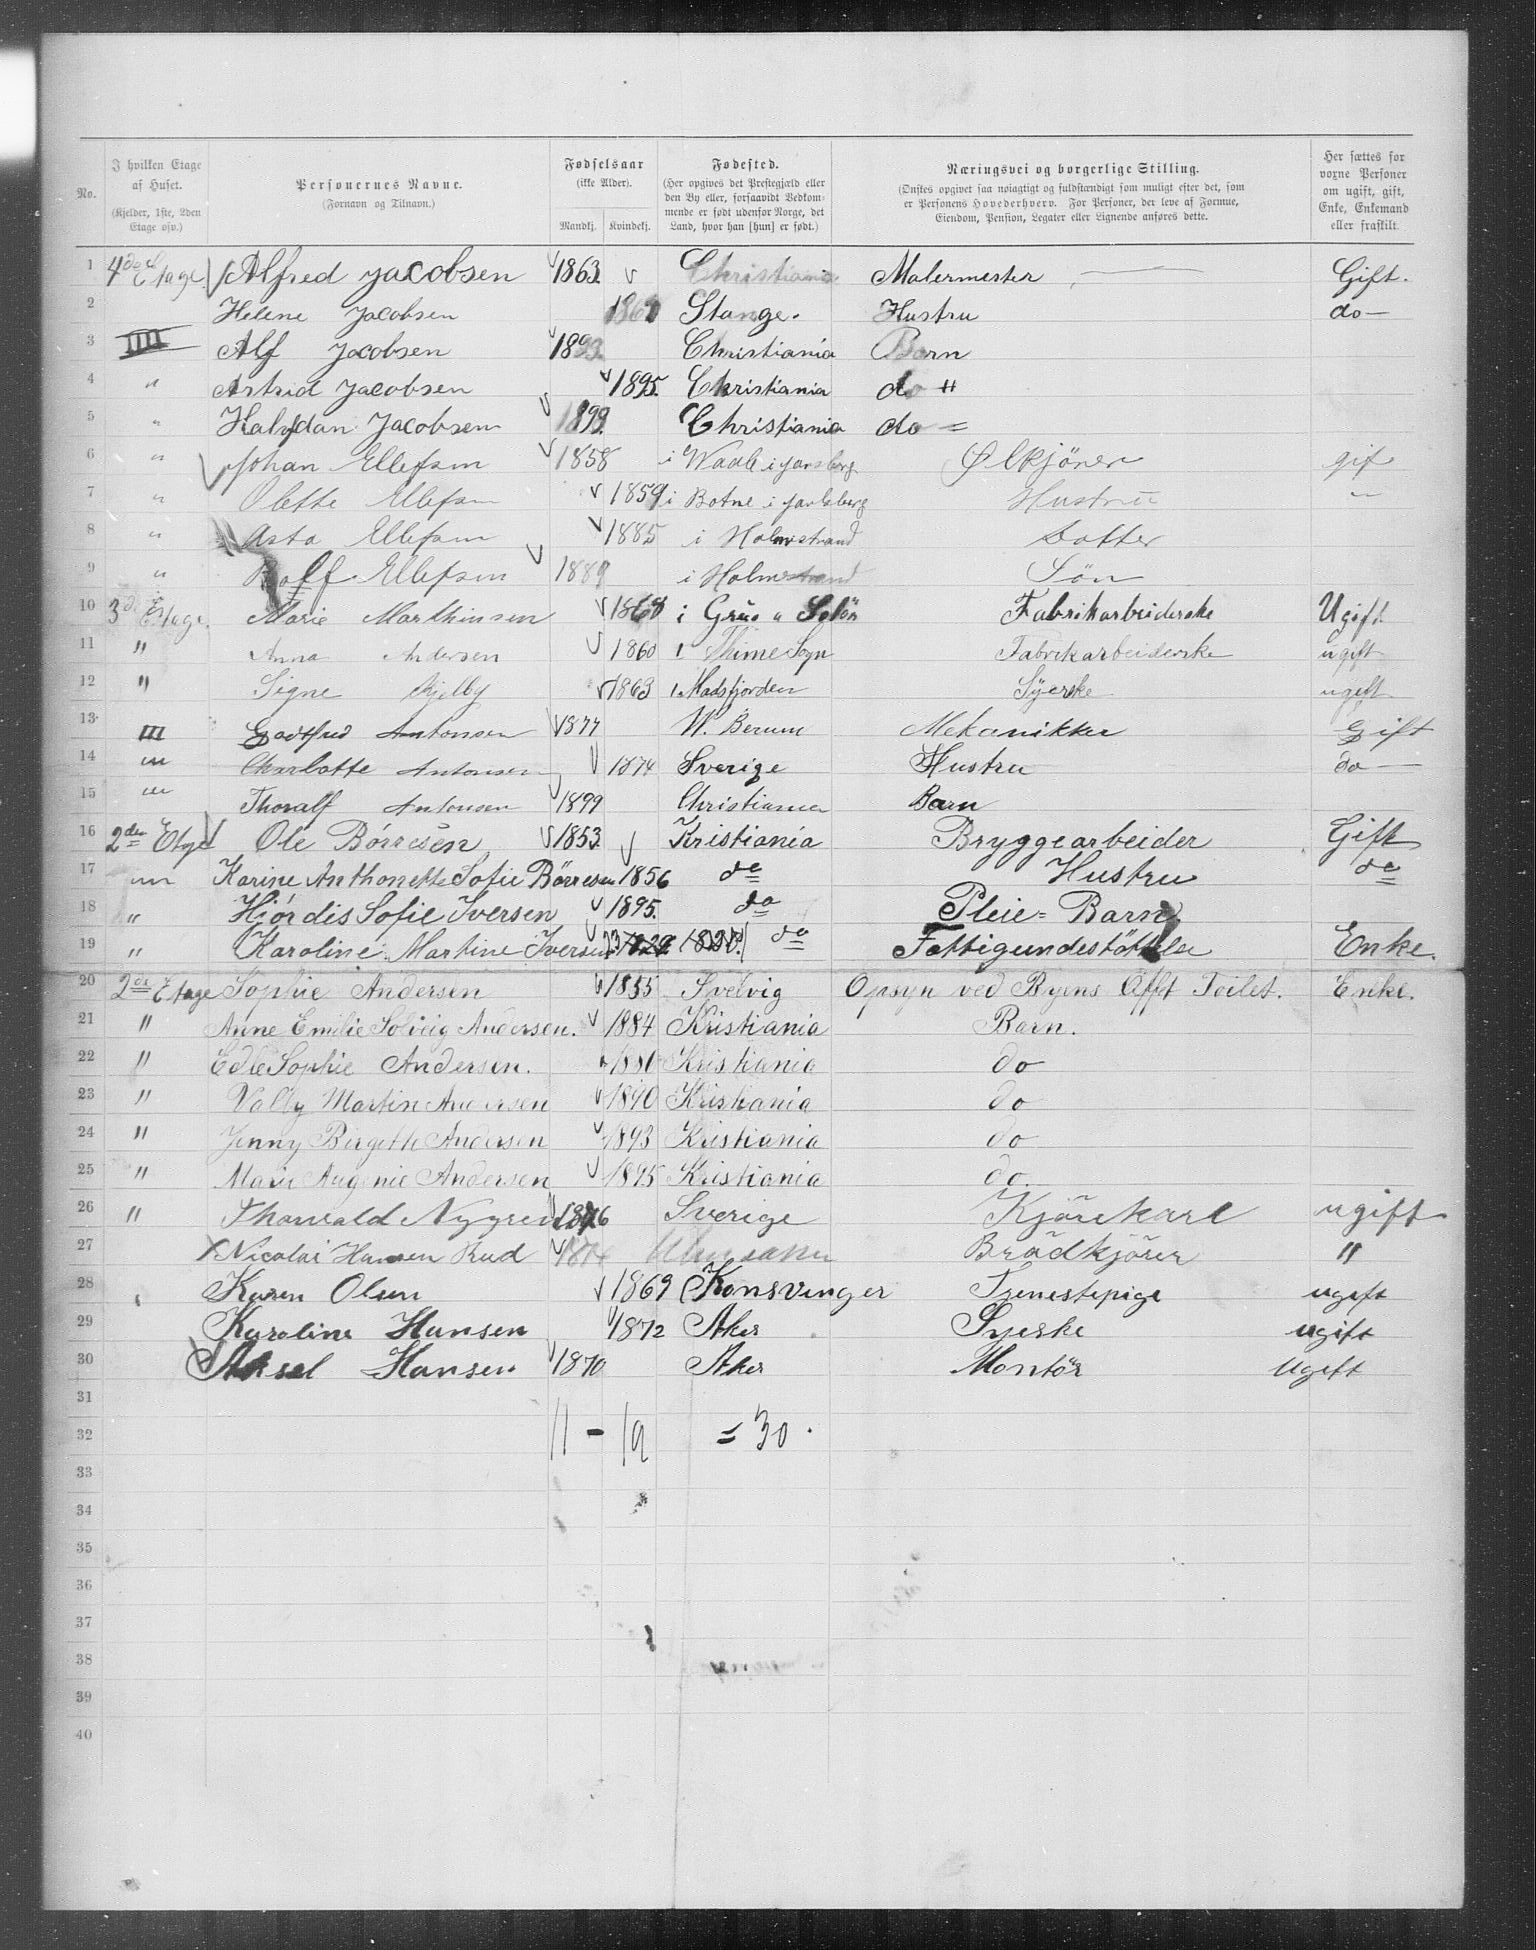 No.
I hvilken Etage af Huset. (Kjelder, 1ste, 2den Etage osv.)
Personernes Navne. (Fornavn og Tilnavn.)
Fødselsaar (ikke Alder). Mandkj. Kvindekj.
Fødested. (Her opgives det Prestegjæld eller den By eller, forsaavidt Vedkommende er født udenfor Norge, det Land, hvor han [hun] er født.)
Næringsvei og borgerlige Stilling. (Ønstes opgivet saa nøiagtigt og fuldstændigt som muligt efter det, som er Personens Hovederhverv. For Personer, der leve af Formue, Eiendom, Pension, Legater eller Lignende anføres dette.
Her sættes for voxne Personer om ugift, gift, Enke, Enkemand eller fraskilt.
1 4de Etage Alfred Jacobsen 1863 Christiania Malermester Gift.
2 Helene Jacobsen Stange. Hustru do —
3 IIII Alf Jacobsen 1893 Christiania Barn
4 " Astrid Jacobsen 1895. Christiania do "
5 " Halvdan Jacobsen 1899. Christiania do =
6 " Johan Ellefsen 1858 i Waale i Jarlsberg Ølkjörer gift
7 " Olette Ellefsen 1859 i Botne i Jarlsberg Hustru "
8 " Asta Ellefsen 1885 i Holmestrand Datter
9 " Rolf Ellefsen 1889 i Holmestrand Sön
10 3de Etage. Marie Marthinsen 1868 i Grue Solör Fabrikarbeiderske Ugift
11 " Anna Andersen 1860 i Thime Sogn Fabrikarbeiderske ugift
12 " Signe 1863 Syerske ugift
13 III Godtfred Antonsen 1877 W. Berum Mekanikker Gift
14 " Charlotte Antonsen 1874 Sverige Hustru do —
15 " Thoralf Antonsen 1899 Christiania Barn
16 2den Etage Ole Börresen 1853. Kristiania Bryggearbeider Gift
17 " Karine Anthonette Sofie Börresen 1856 do Hustru do
18 " Hjördis Sofie Iversen 1895. do Pleie=Barn
19 " Karoline Martine Iversen do Fattigundestöttelse Enke.
20 2de Etage Sophie Andersen 1855 Svelvig Opsyn ved Byens Offt Toilet. Enke.
21 " Anne Emilie Solveig Andersen. 1884 Kristiania Barn.
22 " Edle Sophie Andersen. Kristiania do
23 " Valby Martin Andersen 1890 Kristiania do
24 " Jenny Birgette Andersen 1893 Kristiania do
25 " Marie Augenie Andersen 1895 Kristiania do.
26 " Thorvald Nygren 1876 Sverige Kjörekarl ugift
27 Nicolai Hansen Rud 1874 Brödkjörer "
28 Karen Olsen 1869 Konsvinger Tjenestepige ugift
29 Karoline Hansen 1872 Aker Syerske ugift
30 Aksel Hansen 1870 Aker Montör Ugift
31
32 11 - 19 = 30.
33
34
35
36
37
38
39
40